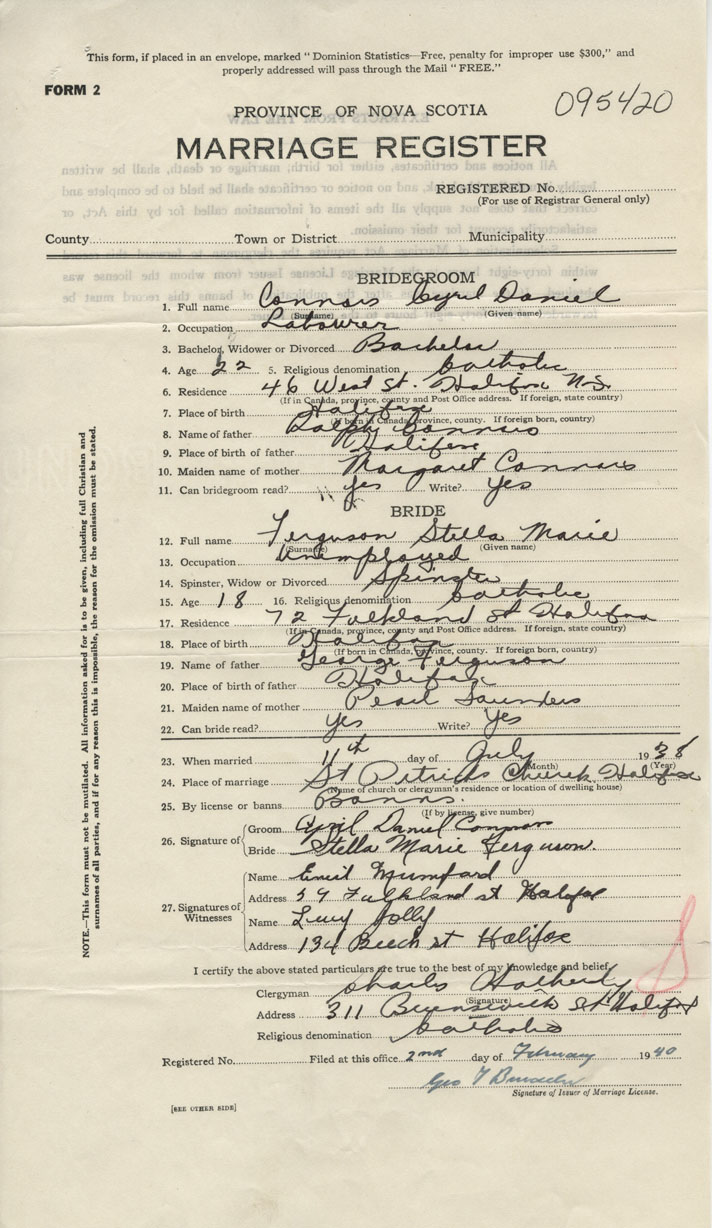 This form, if placed in an envelope, marked "Dominion Statistics—Free, penalty for improper use $300," and
properly addressed will pass through the Mail "FREE."
FORM 2
095420
PROVINCE OF NOVA SCOTIA
MARRIAGE REGISTER
REGISTERED No.
(For use of Registrar General only)
County Town or District Municipality
BRIDEGROOM
1. Full name Connors Cyril Daniel
(Surname) (Given name)
2. Occupation Labourer
3. Bachelor, Widower or Divorced Bachelor
4. Age 22 5. Religious denomination Catholic
6. Residence 46 West St. Halifax N.S.
(If in Canada, province, county and Post Office address. If foreign, state country)
7. Place of birth Halifax
(If born in Canada, province, county. If foreign born, country)
8. Name of father Ralph Connors
9. Place of birth of father Halifax
10. Maiden name of mother Margaret Connors
11. Can bridegroom read? yes Write? yes
BRIDE
12. Full name Ferguson Stella Marie
(Surname) (Given name)
13. Occupation Unemployed
14. Spinster, Widow or Divorced Spinster
15. Age 18 16. Religious denomination Catholic
17. Residence 72 Falkland St Halifax
(If in Canada, province, county and Post Office address. If foreign, state country)
18. Place of birth Halifax
(If born in Canada, province, county. If foreign born, country)
19. Name of father George Ferguson
20. Place of birth of father Halifax
21. Maiden name of mother Pearl Saunders
22. Can bride read? yes Write? yes
23. When married 11th day of July 1938
(Month) (Year)
24. Place of marriage St Patricks Church Halifax
(Name of church or clergyman's residence or location of dwelling house)
25. By license or banns Banns.
(If by license, give number)
26. Signature of
Groom Cyril Daniel Connors
Bride Stella Marie Ferguson.
27. Signatures of Witnesses
Name Mumford
Address 59 Falkland st Halifax
Name Lucy Jolly
Address 134 Beech st Halifax
I certify the above stated particulars are true to the best of my knowledge and belief.
Clergyman Charles
(Signature)
Address 311 Brunswick St Halifax
Religious denomination Catholic
Registered No. Filed at this office 2nd day of February 1940
Geo T
Signature of Issuer of Marriage License.
[SEE OTHER SIDE]
NOTE.—This form must not be mutilated. All information asked for is to be given, including full Christian and
surnames of all parties, and if for any reason this is impossible, the reason for the omission must be stated.